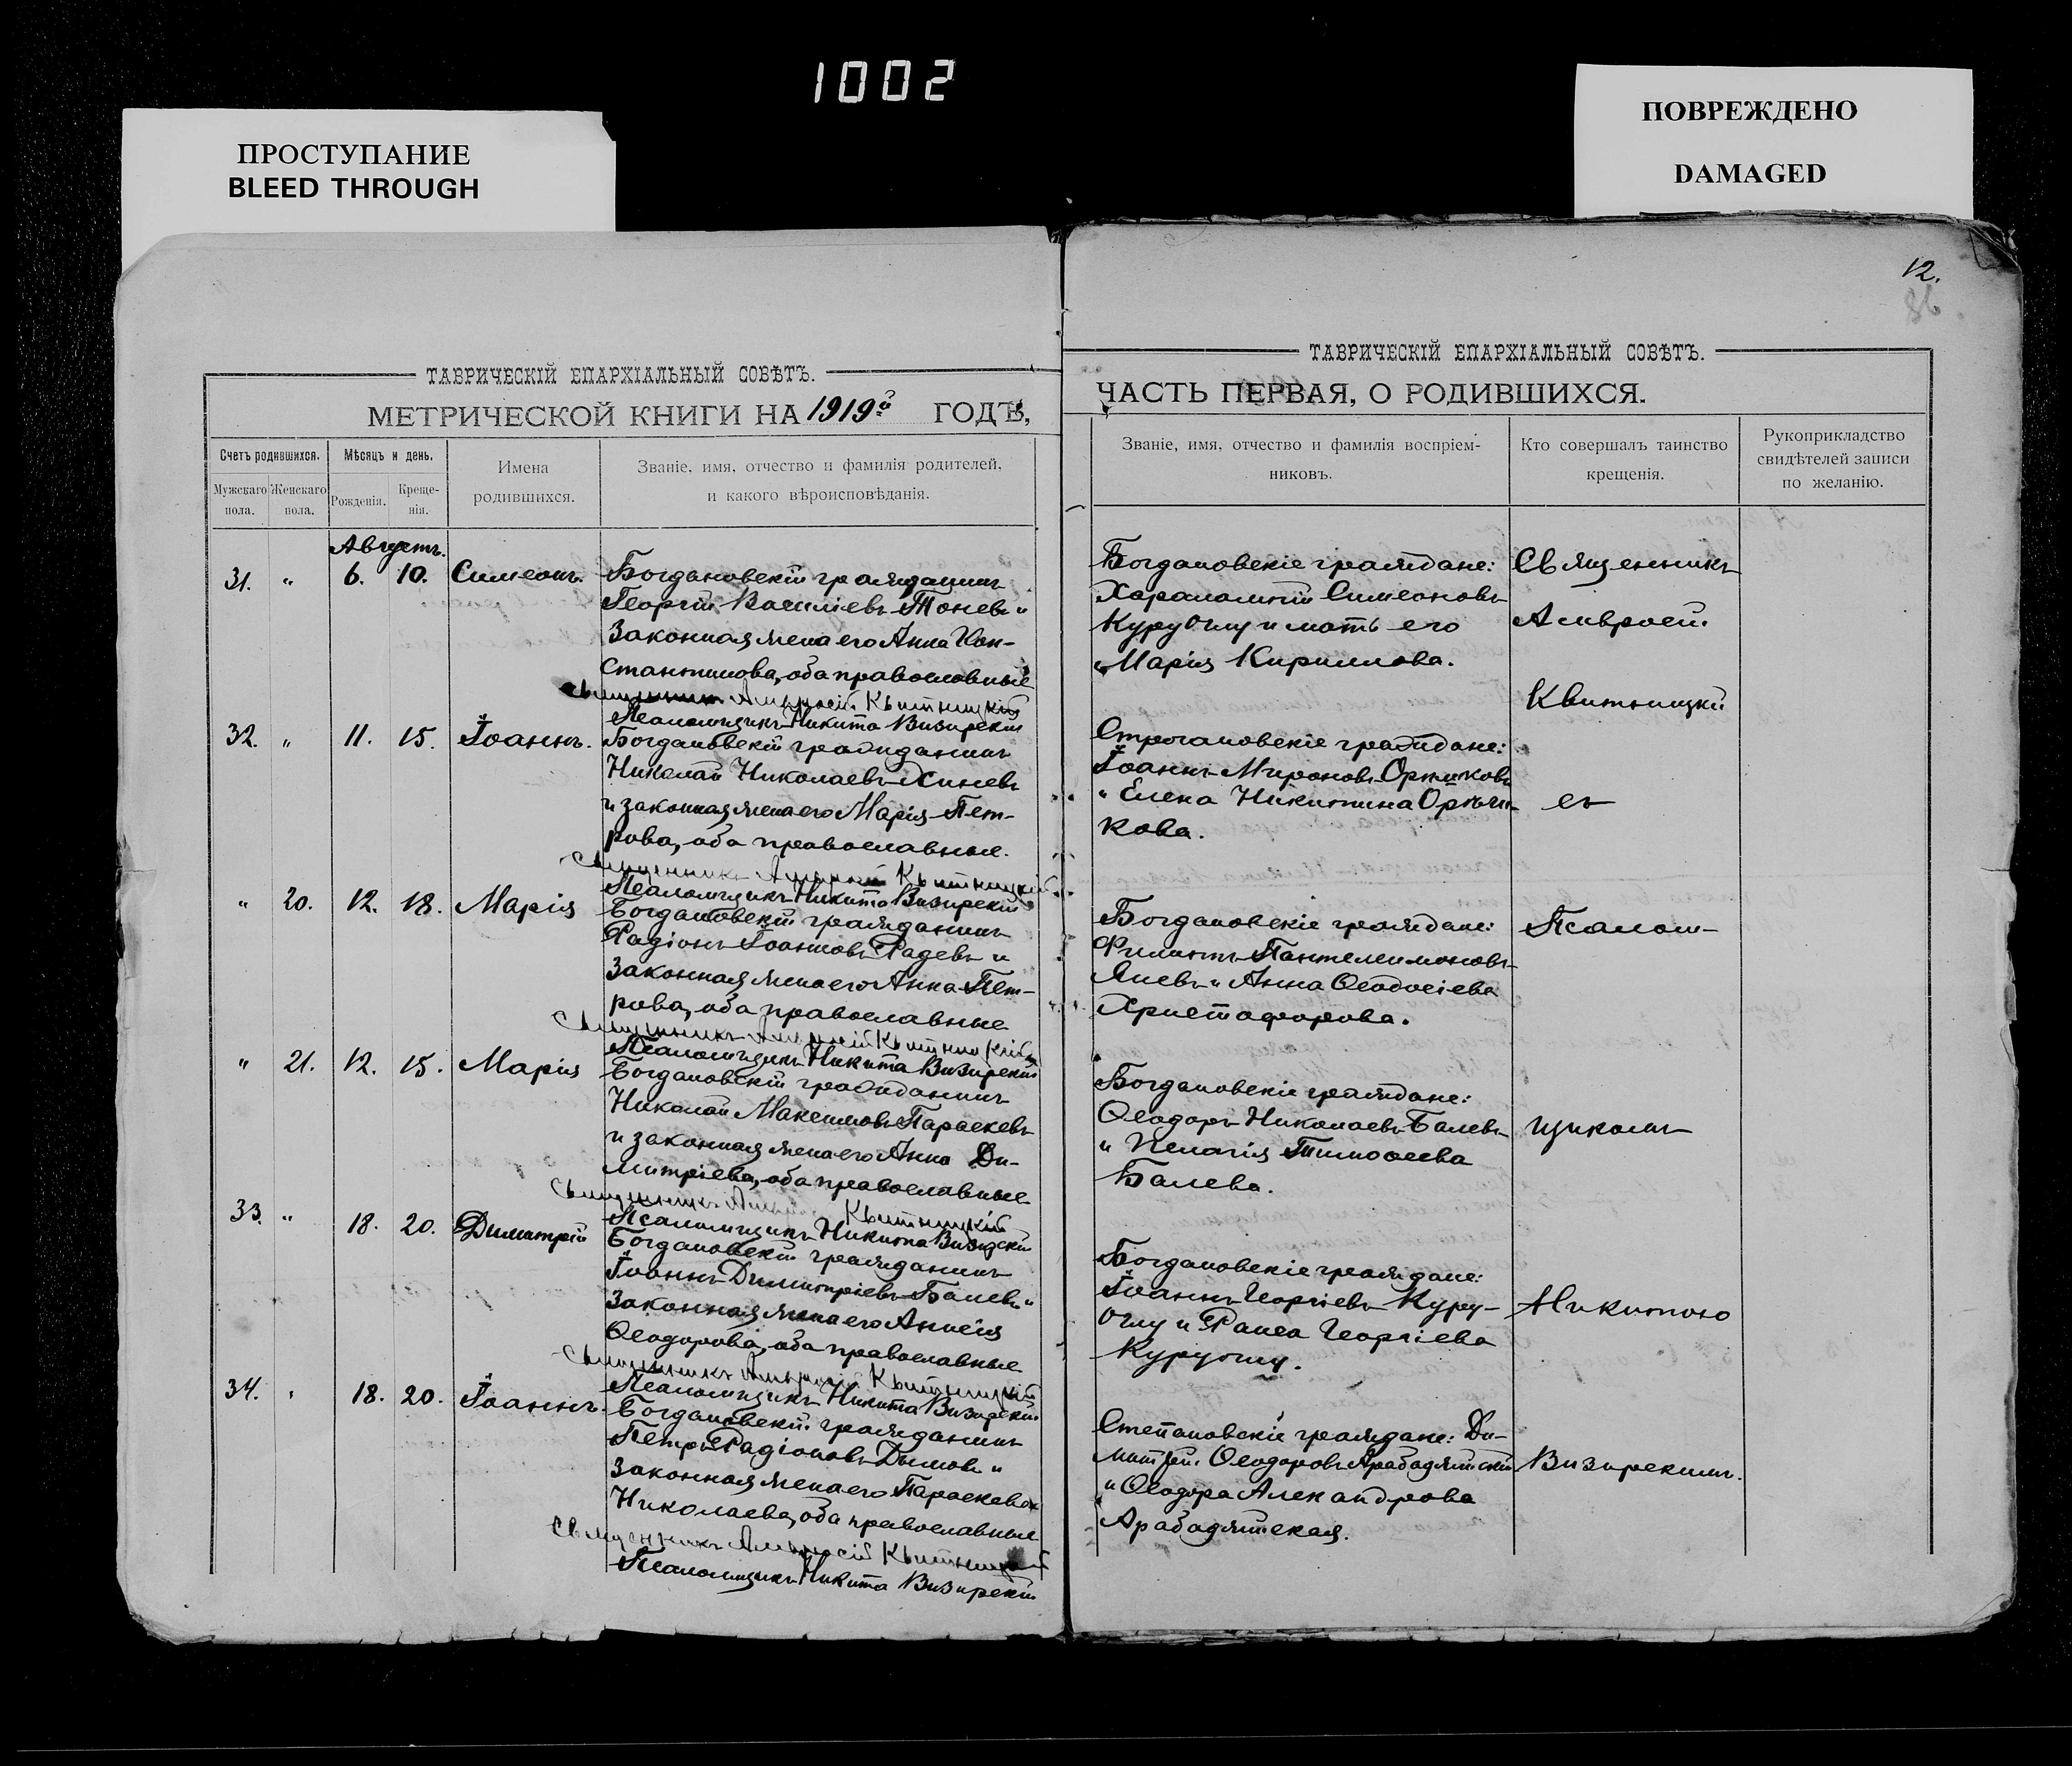 1002
ПРОСТУПАНИЕ
BLEED THROUGH
ПОВРЕЖДЕНО
DAMAGED
12.
86
ТАВРИЧЕСКІЙ ЕПАРХІАЛЬНЫЙ СОВѢТЪ.
МЕТРИЧЕСКОЙ КНИГИ НА 1919й ГОДЪ,
Счетъ родившихся.
Мужскаго пола.
Женскаго пола.
Мѣсяцъ и день.
Рожденія.
Креще-
нія.
Имена
родившихся.
Званіе, имя, отчество и фамилія родителей,
и какого вѣроисповѣданія.
Августъ.
31. " 6. 10. Симеонъ.
Богдановскій гражданинъ
Георгій Василіевъ Тоневъ и
законная жена его Анна Кон-
стантинова, оба православные
Священникъ Амвросій Квитницкій
Псаломщикъ Никита Визирскій
32. " 11. 15. Іоаннъ.
Богдановскій гражданинъ
Николай Николаевъ Хиневъ
и законная жена его Марія Пет-
рова, оба православные.
Священникъ Амвросій Квитницкій
Псаломщикъ Никита Визирскій
" 20. 12. 18. Марія
Богдановскій гражданинъ
Радіонъ Іоанновъ Радевъ и
законная жена его Анна Пет-
рова, оба православные
Священникъ Амвросій Квитницкій
Псаломщикъ Никита Визирскій
" 21. 12. 15. Марія
Богдановскій гражданинъ
Николай Максимовъ Параскевъ
и законная жена его Анна Ди-
митріева, оба православные
Священникъ Квитницкій
Псаломщикъ Никита Визирскій
33. " 18. 20. Димитрій
Богдановскій гражданинъ
Іоаннъ Димитріевъ Балевъ и
законная жена его Анисія
Ѳеодорова, оба православные
Священникъ Амвросій Квитницкій
Псаломщикъ Никита Визирскій
34. " 18. 20. Іоаннъ.
Богдановскій гражданинъ
Петръ Радіоновъ Димовъ и
законная жена его Параскева
Николаева, оба православные
Священникъ Амвросій Квитницкій
Псаломщикъ Никита Визирскій
ТАВРИЧЕСКІЙ ЕПАРХІАЛЬНЫЙ СОВѢТЪ.
ЧАСТЬ ПЕРВАЯ, О РОДИВШИХСЯ.
Званіе, имя, отчество и фамилія воспріем-
никовъ.
Кто совершалъ таинство
крещенія.
Рукоприкладство
свидѣтелей записи
по желанію.
Богдановскіе граждане:
Харалампій Симеоновъ
Куруоглу и мать его
Марія Кириллова.
Строгановскіе граждане:
Іоаннъ Мироновъ
и Елена Никитина
кова.
Богдановскіе граждане:
Филиппъ Пантелеимоновъ
Яневъ и Анна Ѳеодосіева
Христофорова.
Богдановскіе граждане:
Ѳеодоръ Николаевъ Балевъ
и Пелагія Тимоѳеева
Балева.
Богдановскіе граждане:
Іоаннъ Георгіевъ Куру-
оглу и Раиса Георгіева
Куруоглу.
Степановскіе граждане: Ди-
митрій Ѳеодоровъ Арабаджійскій
и Ѳеодора Александрова
Арабаджійская.
Священникъ
Амвросій
Квитницкій
съ
Псалом-
щикомъ
Никитою
Визирскимъ.